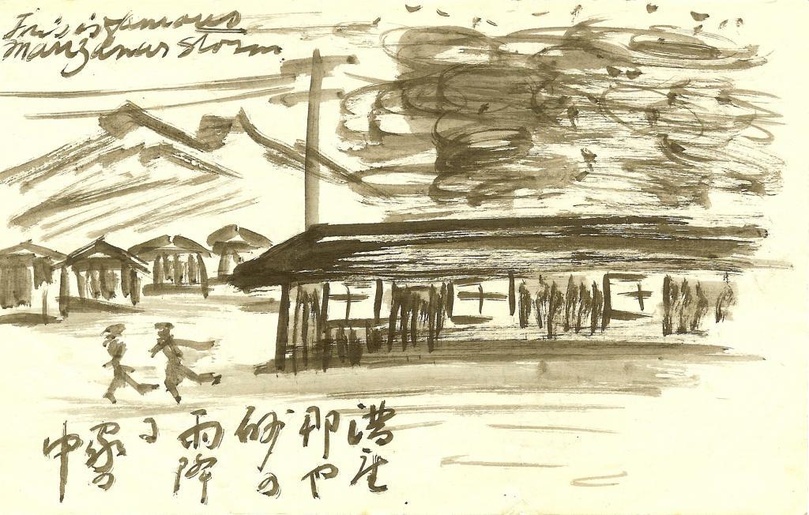 This is famous
Manzanar Storm
満座
那や
砂の
雨降
る
家の
中